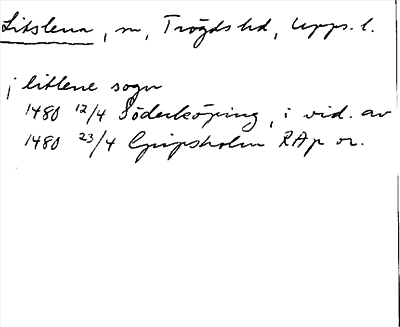 Litslena, sn, Trögds hd, Upps. l.
j litlene sogn
1480 12/4 Söderköping, i vid. av
1480 23/4 Gripsholm RAp or.